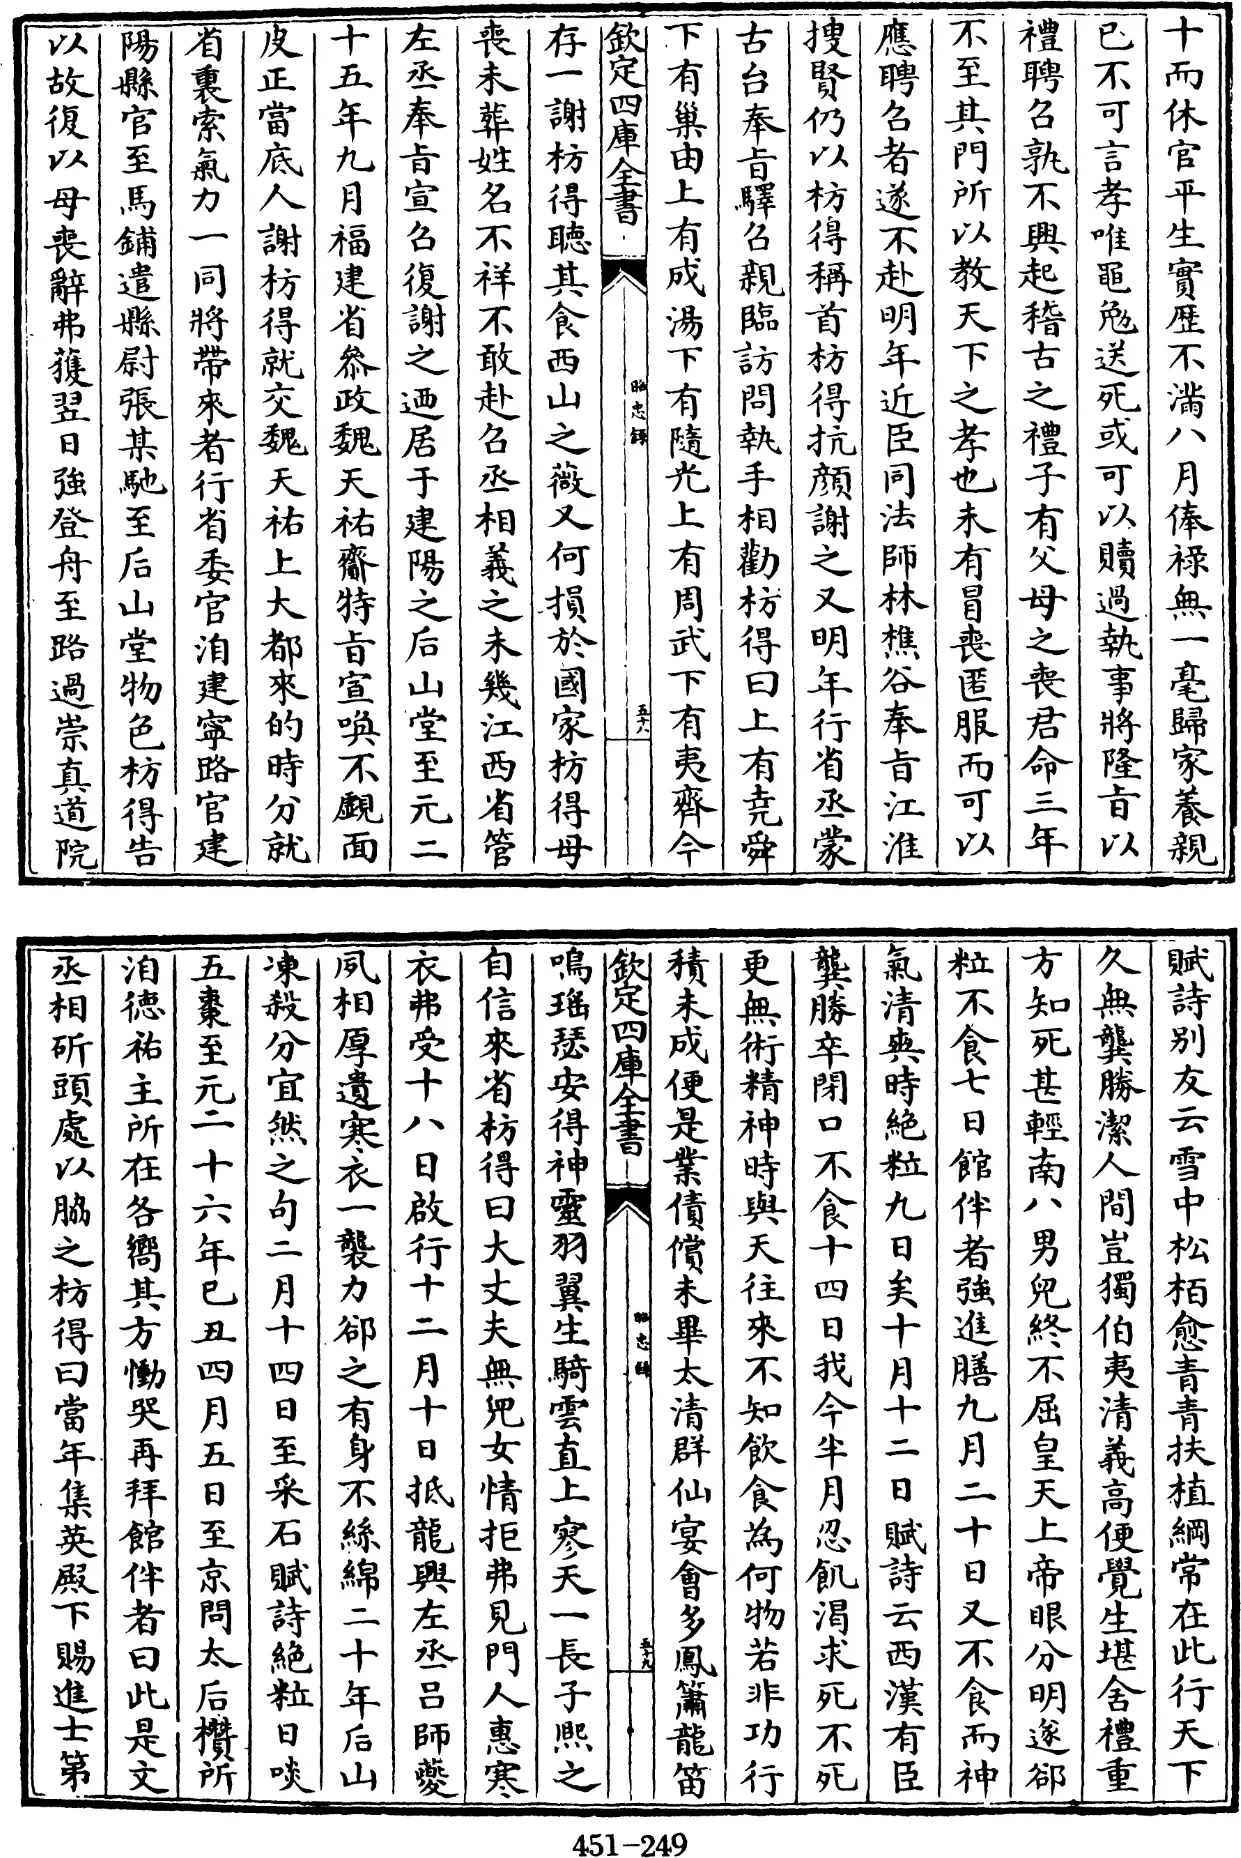 十而休官平生實歴不滿八月俸祿無一毫歸家養親
已不可言孝唯黽勉送死或可以贖過執事將隆旨以
禮聘召孰不興起稽古之禮子有父母之喪君命三年
不至其門所以教天下之孝也未有冒喪匿服而可以
應聘召者遂不赴明年近臣同法師林樵谷奉旨江淮
搜賢仍以枋得稱首枋得抗顔謝之又明年行省丞蒙
古台奉旨驛召親臨訪問執手相勸枋得曰上有堯舜
下有巢由上有成湯下有隨光上有周武下有夷齊今
欽定四庫全書
昭忠録
五十八
存一謝枋得聽其食西山之薇又何損於國家枋得母
喪未葬姓名不祥不敢赴召丞相義之未幾江西省管
左丞奉旨宣召復謝之迺居于建陽之后山堂至元二
十五年九月福建省叅政魏天祐齎特旨宣喚不覿面
皮正當底人謝枋得就交魏天祐上大都來的時分就
省裏索氣力一同將帶來者行省委官洎建寧路官建
陽縣官至馬鋪遣縣尉張某馳至后山堂物色枋得告
以故復以母喪辭弗獲翌日強登舟至路過崇真道院
賦詩别友云雪中松栢愈青青扶植綱常在此行天下
久無龔勝潔人間豈獨伯夷清義高便覺生堪舍禮重
方知死甚輕南八男兒終不屈皇天上帝眼分明遂郤
粒不食七日館伴者強進膳九月二十日又不食而神
氣清爽時絶粒九日矣十月十二日賦詩云西漢有臣
龔勝卒閉口不食十四日我今半月忍飢渴求死不死
更無術精神時與天往來不知飲食為何物若非功行
積未成便是業債償未畢太清群仙宴會多鳳簫龍笛
欽定四庫全書
昭忠録
五十九
鳴瑶瑟安得神靈羽翼生騎雲直上寥天一長子熈之
自信來省枋得曰大丈夫無兒女情拒弗見門人惠寒
衣弗受十八日啟行十二月十日抵龍興左丞吕師夔
夙相厚遺寒衣一襲力郤之有身不絲綿二十年后山
凍殺分宜然之句二月十四日至采石賦詩絶粒日啖
五棗至元二十六年已丑四月五日至京問太后欑所
洎德祐主所在各嚮其方慟哭再拜館伴者曰此是文
丞相斫頭處以脇之枋得曰當年集英殿下賜進士第
451-249